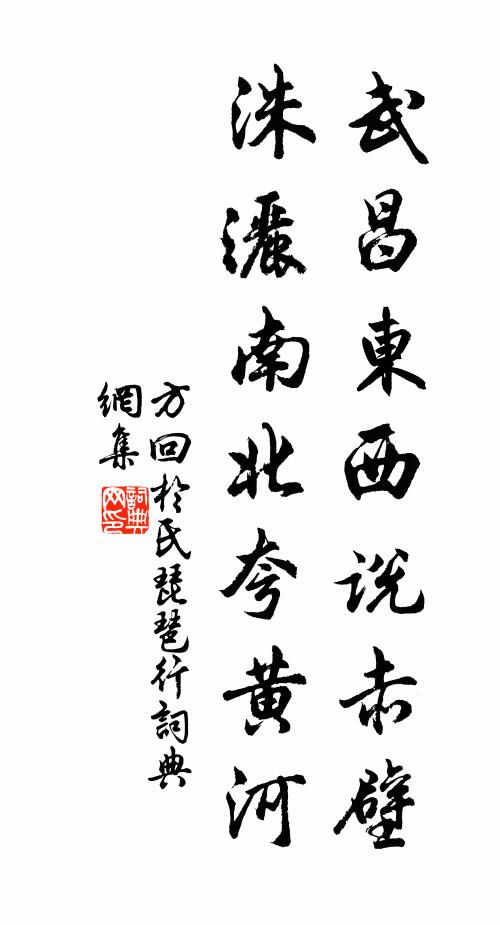 武昌東西説赤壁
洙灑南北夸黄河
方回於氏琵琶行詞典
網集
詞典
网印